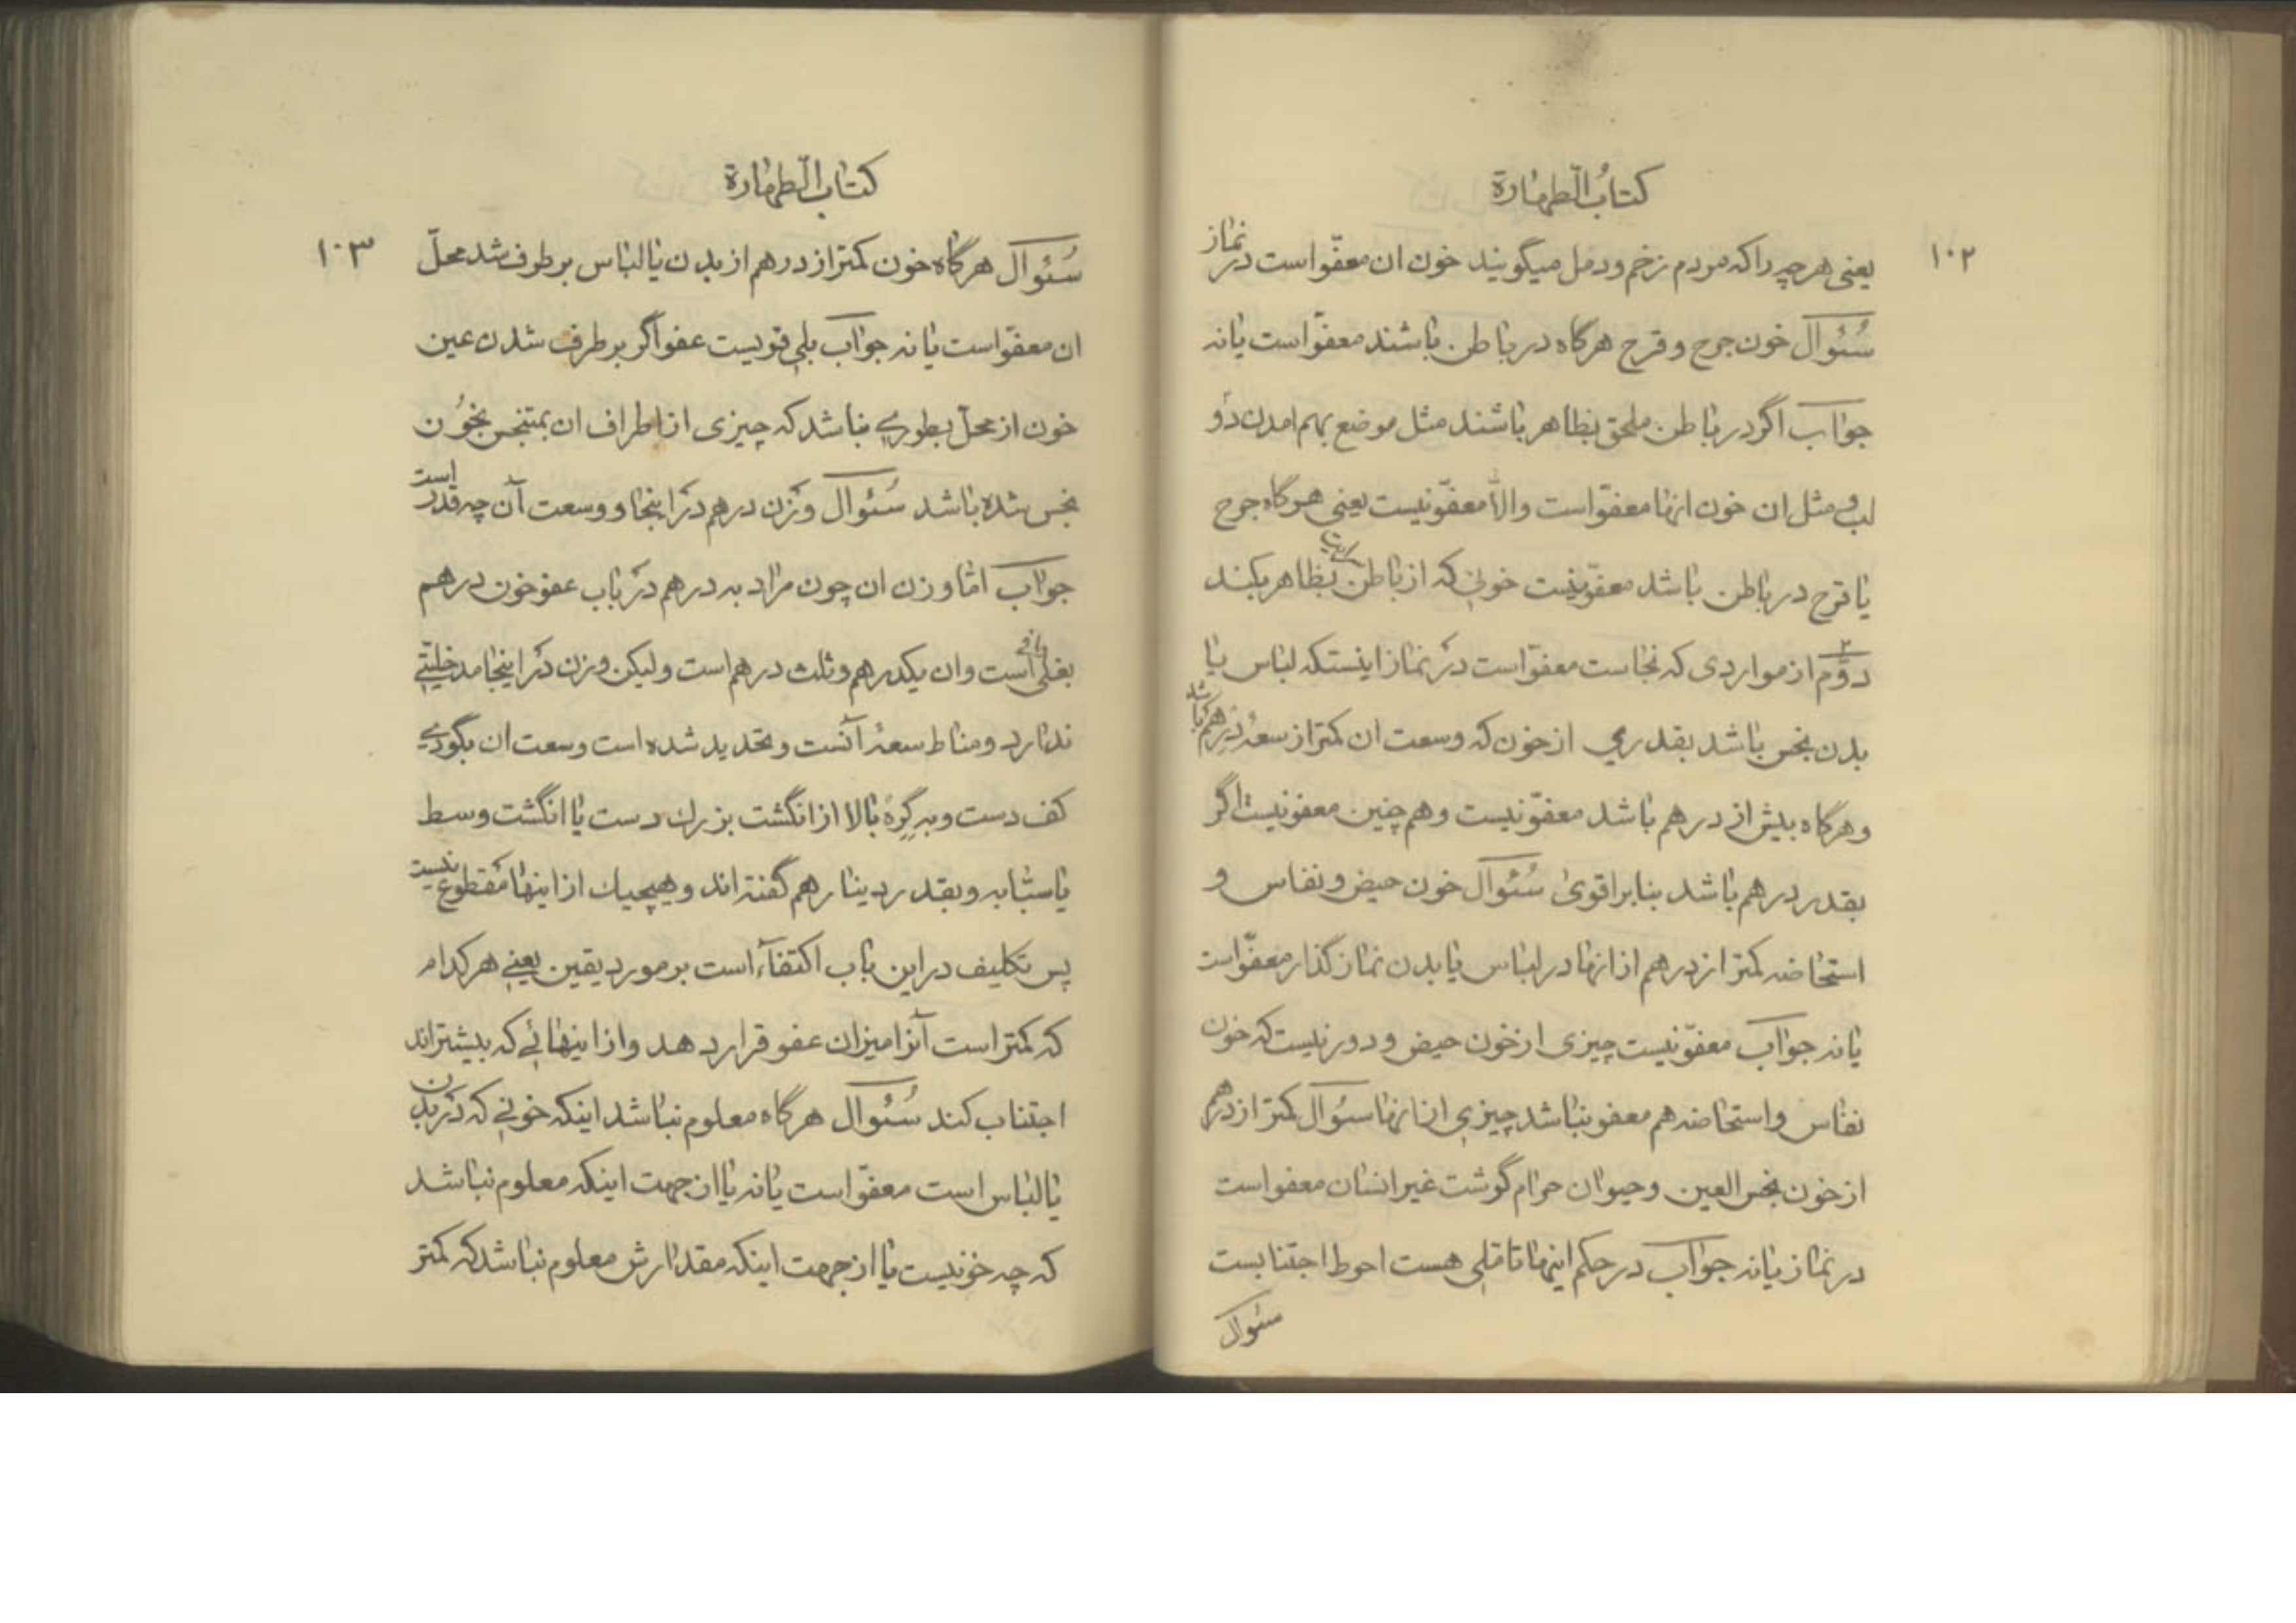 کتابُ الطّهارة
۱۰۲
یعنی هرچه را که مردم زخم و دمل میگویند خون ان معفوّ است در نماز
سُئوال خون جرح و قرح هرگاه در باطن باشند معفوّ است یا نه
جواب اگر در باطن ملحق بظاهر باشند مثل موضع بهم امدن دو
لب و مثل ان خون انها معفوّ است والّا معفوّ نیست یعنی هرگاه جرح
یا قرح در باطن باشد معفوّ نیست خونی که از باطن بظاهر
دوّم از مواردی که نجاست معفوّ است در نماز اینستکه لباس یا
بدن نجس باشد بقدری از خون که وسعت ان کمتر از سعهٔ درهم باشد
و هرگاه بیش از درهم باشد معفوّ نیست و هم چنین معفو نیست اگر
بقدر درهم باشد بنابر اقوی سُئوال خون حیض و نفاس و
استحاضه کمتر از درهم از انها در لباس یا بدن نماز گذار معفوّ است
یا نه جواب معفوّ نیست چیزی از خون حیض و دور نیست که خون
نفاس و استحاضه هم معفو نباشد چیزی از انها سئوال کمتر از درهم
از خون نجس العین و حیوان حرام گوشت غیر انسان معفو است
در نماز یا نه جواب در حکم اینها تاملی هست احوط اجتنابست
سئوال
کتاب الطّهارة
۱۰۳
سُئوال هرگاه خون کمتر از درهم از بدن یا لباس بر طرف شد محلّ
ان معفوّ است یا نه جواب بلی قویست عفو اگر بر طرف شدن عین
خون از محلّ بطوری نباشد که چیزی از اطراف ان بمتنجس بخون
نجس شده باشد سُئوال وزن درهم در اینجا و وسعت آن چه قدر است
جواب امّا وزن ان چون مراد به درهم در باب عفو خون درهم
بغلی است وان یکدرهم و ثلث درهم است ولیکن وزن در اینجا مدخلیّتی
ندارد و مناط سعهٔ آنست و تحدید شده است وسعت ان بگودی
کف دست و به گِرِهٔ بالا از انگشت بزرك دست یا انگشت وسط
یا سبّابه و بقدر دینار هم گفته اند و هیچیك از اینها مقطوع نیست
پس تکلیف در این باب اکتفآء است بر مورد یقین یعنی هر کدام
که کمتر است آنرا میزان عفو قرار دهد و از اینهائی که بیشتراند
اجتناب کند سُئوال هرگاه معلوم نباشد اینکه خونی که در بدن
یا لباس است معفوّ است یا نه یا از جهت اینکه معلوم نباشد
که چه خونیست یا از جهت اینکه مقدارش معلوم نباشد که کمتر